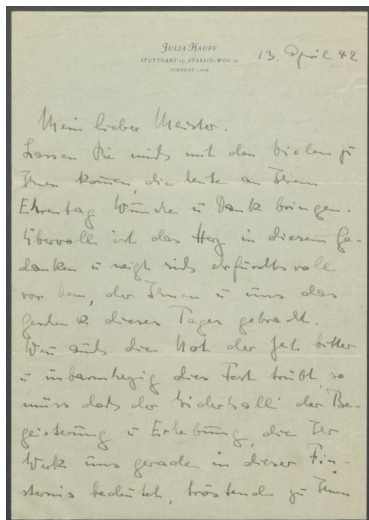 JULIA HAUFF
STUTTGART
13. April 42
Mein lieber Meister.
Lassen Sie mich mit den vielen zu
Ihnen kommen, die heute an Ihrem
Ehrentag Wünsche u Dank bringen.
Übervoll ist das Herz in diesem Ge-
danken u neigt sich ehrfurchtsvoll
vor dem, der Ihnen u uns das
Geschenk dieses Tages gebracht.
Wenn auch die Not der Zeit bitter
u unbarmherzig dies Fest trübt, so
muss doch der Widerhall der Be-
geisterung u Erhebung, die Ihr
Werk uns gerade in dieser Fin-
sternis bedeutet, tröstend zu Ihnen